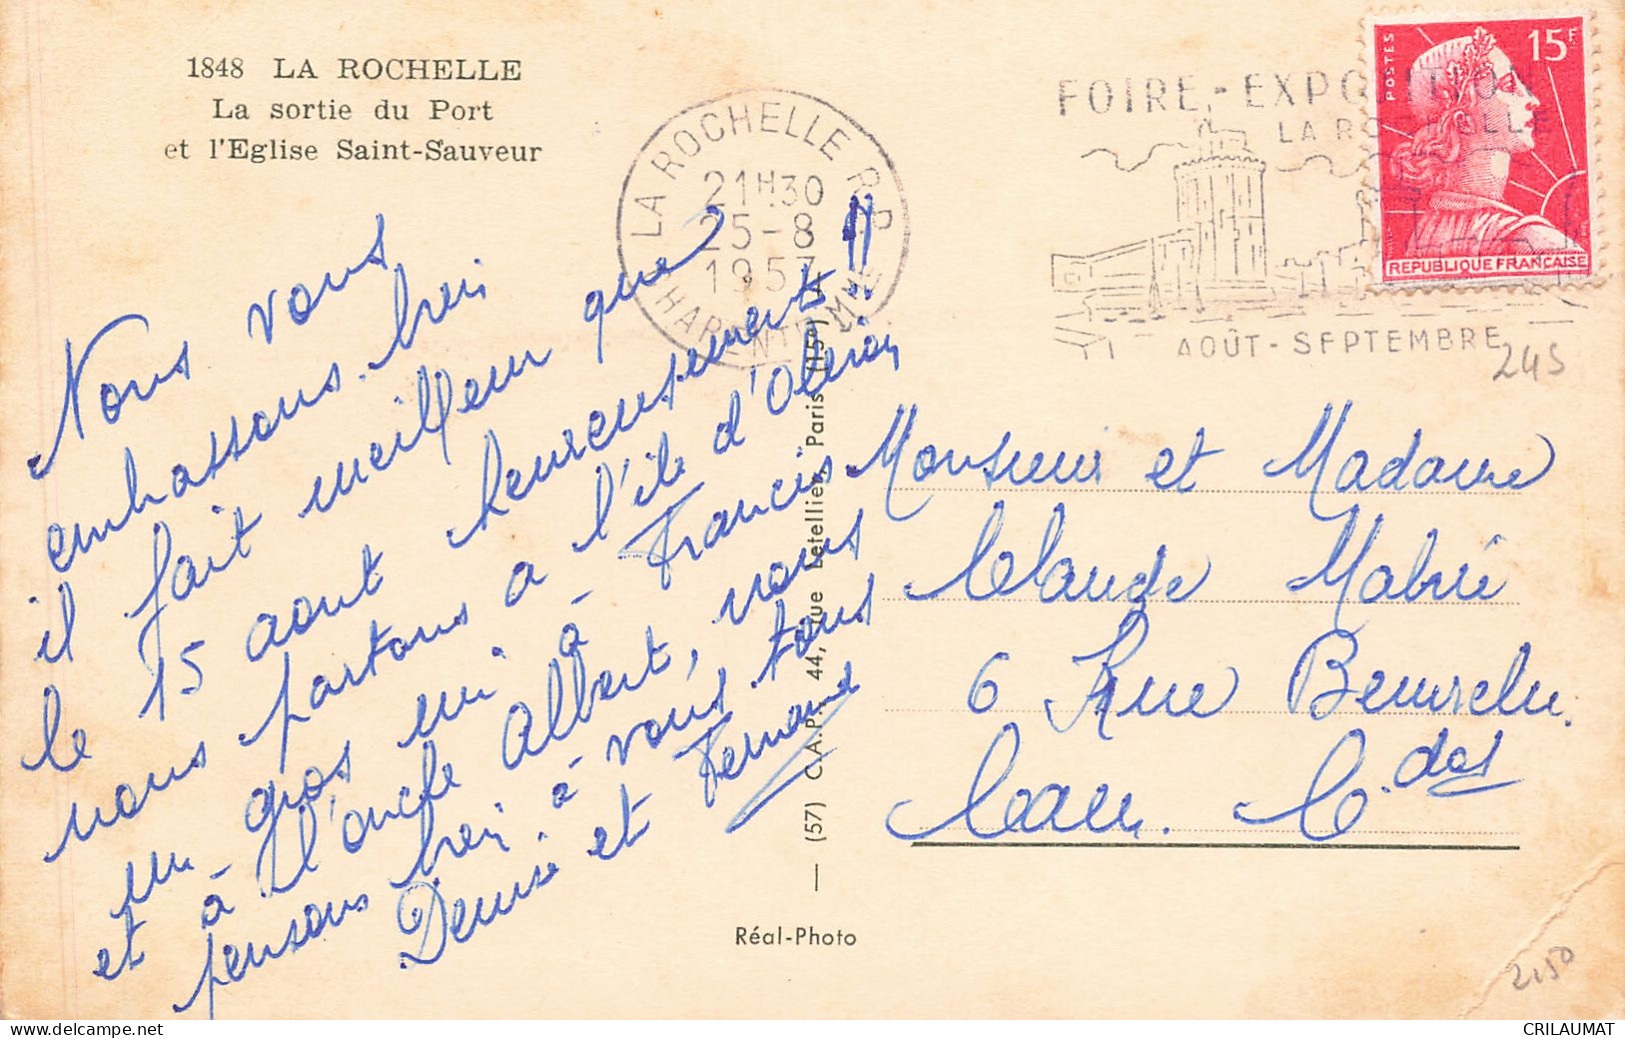 1848 LA ROCHELLE
La sortie du Port
et l'Eglise Saint-Sauveur
LA ROCHELLE R.P.
21H30
25-8
1957
CHARENTE MME
FOIRE-EXPOSITION
LA ROCHELLE
AOÛT-SEPTEMBRE
POSTES
15F
REPUBLIQUE FRANÇAISE
245
Nous vous
embrassons. bien
il fait meilleur que
le 15 aout heureusement !!
nous partons a l'ile d'Oleron
un gros mi. à Francis
et à l'oncle Albert, nous
pensons bien à vous tous
Denise et Fernand
Monsieur et Madame
Claude Mabrié
6 Rue
Caen. C.dos
(57) C.A.P. 44, rue Letellier, Paris (15e)
Réal-Photo
2,50
CRILAUMAT